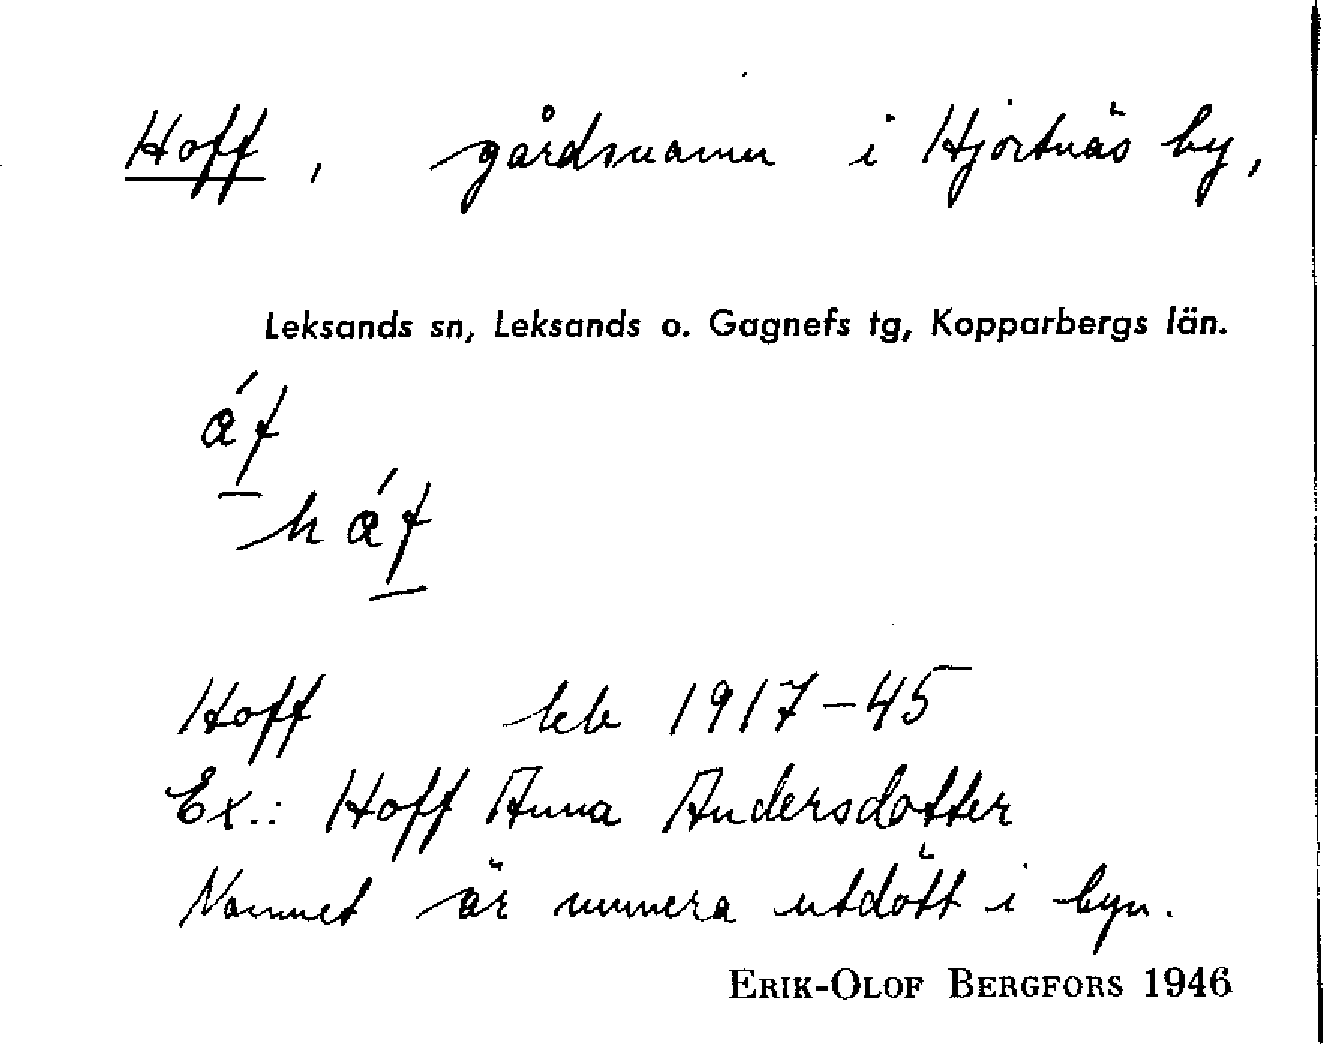 Hoff, gårdsnamn i Hjortnäs by,
Leksands sn, Leksands o. Gagnefs tg, Kopparbergs län.
áf
háf
Hoff kb 1917-45
Ex.: Hoff Anna Andersdotter
Namnet är numera utdött i byn.
ERIK-OLOF BERGFORS 1946